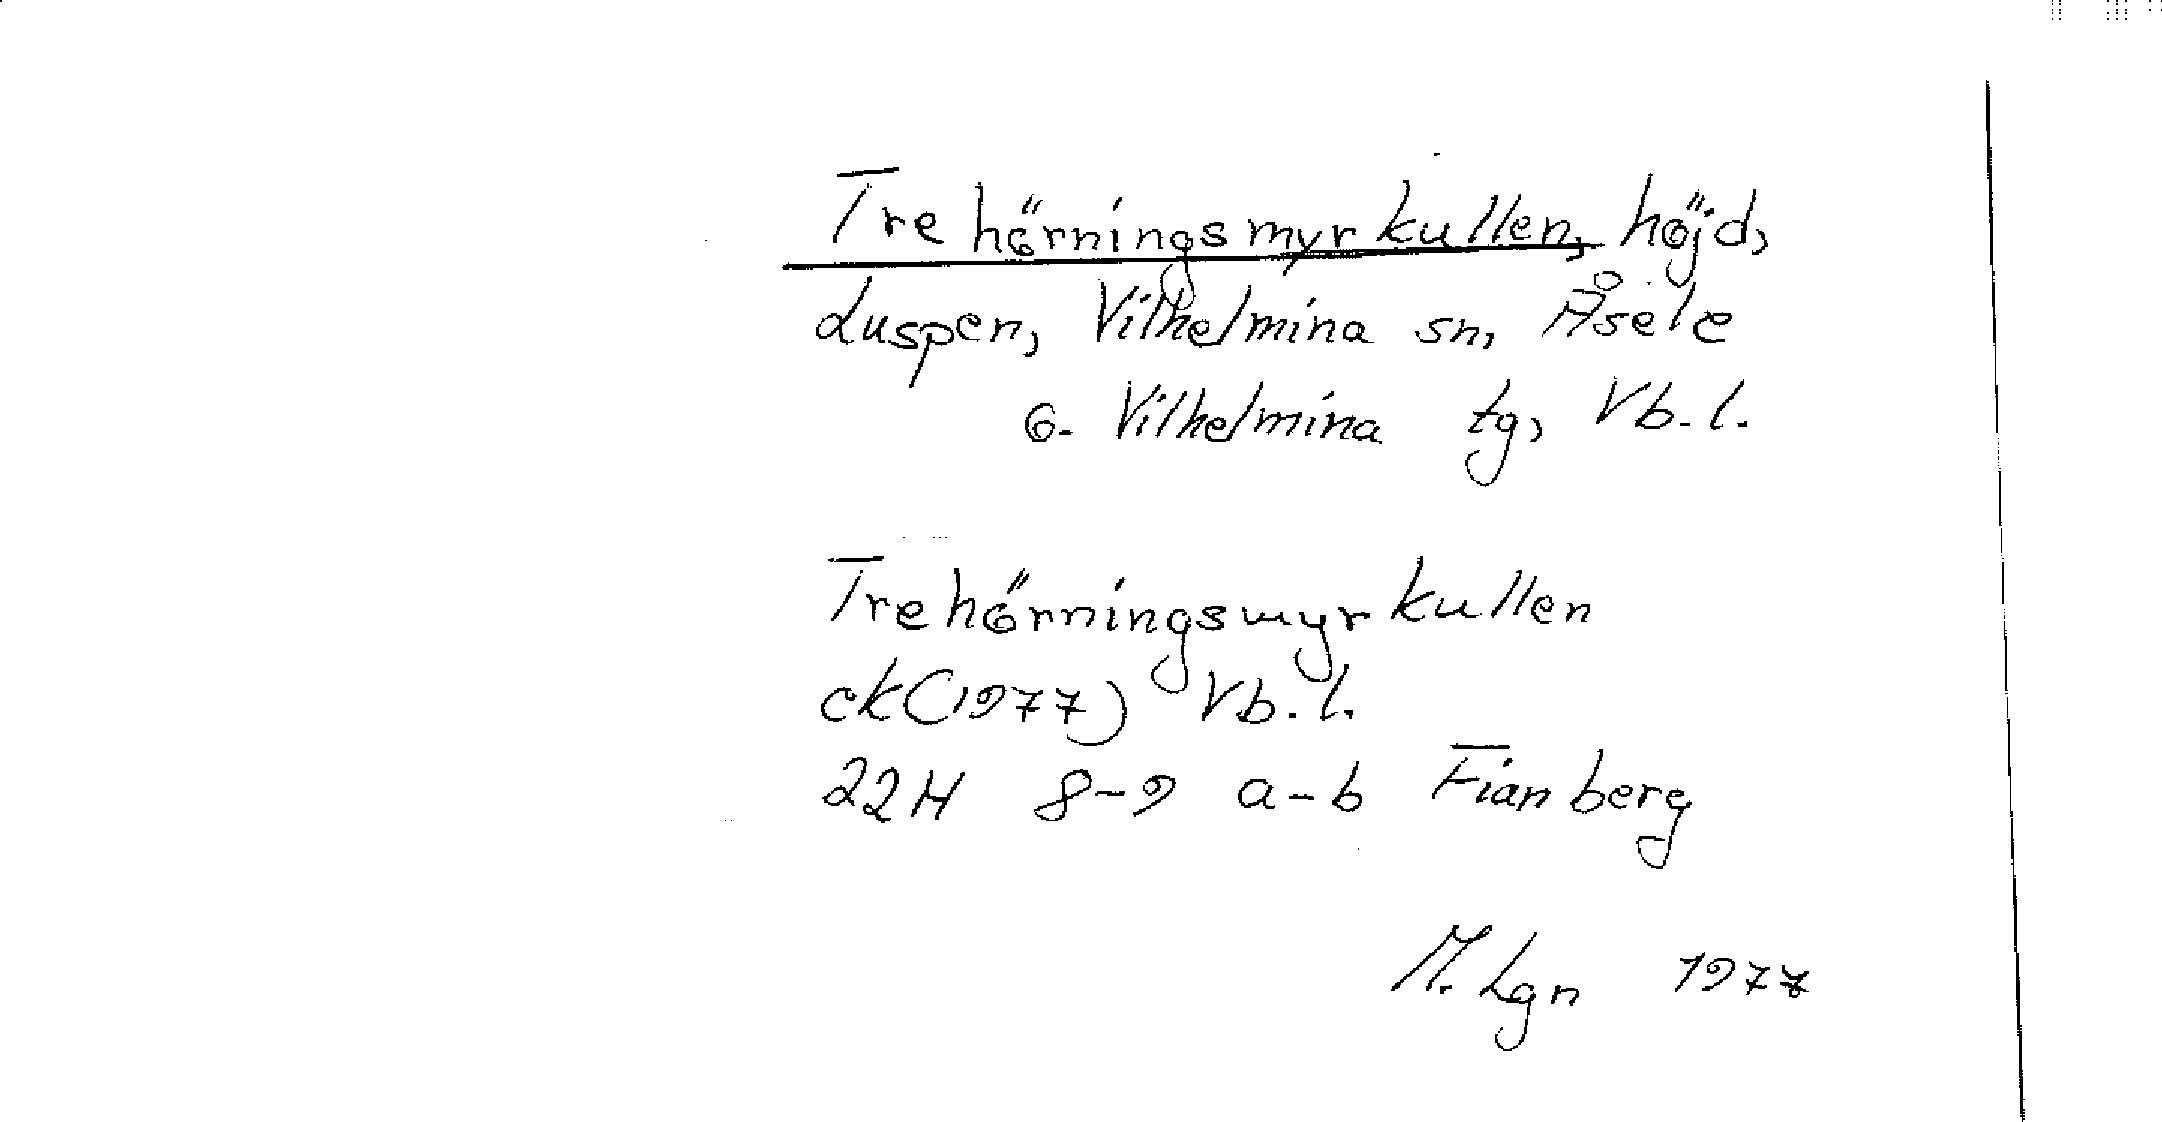 Trehörningsmyrkullen, höjd,
Luspen, Vilhelmina sn, Åsele
o. Vilhelmina tg, Vb.l.
Trehörningsmyrkullen
ek(1977) Vb.l.
22H 8-9 a-b Fianberg
M. Lgn 1977